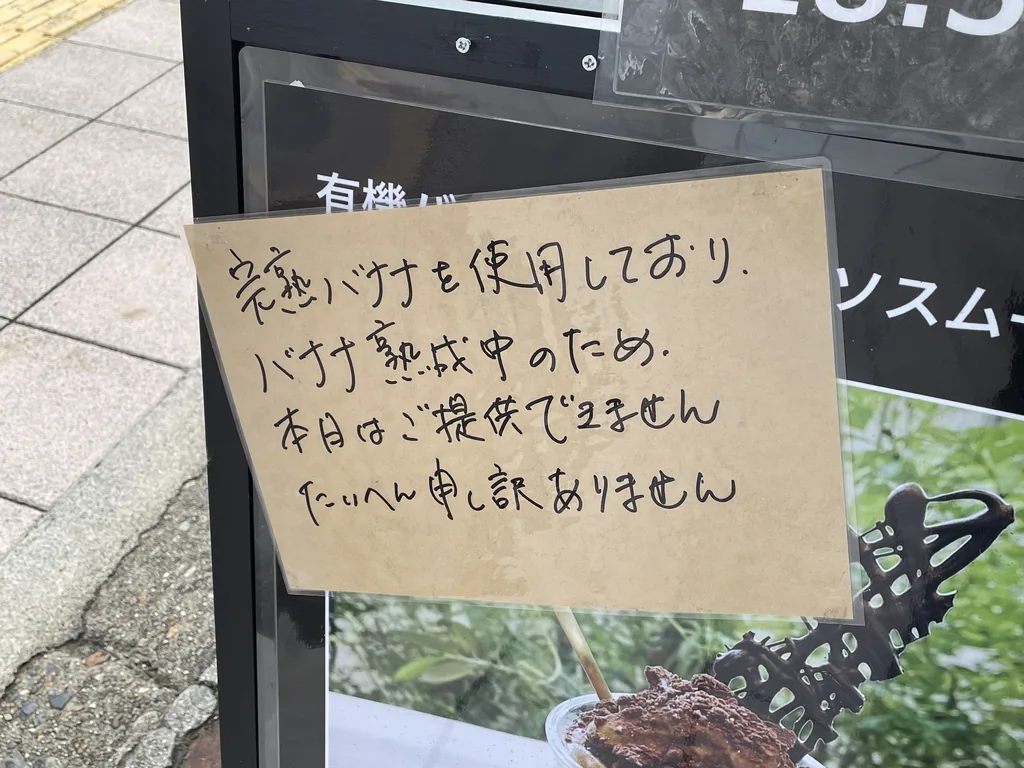 18.5
有機バ
ソスム
完熟バナナを使用しており.
バナナ熟成中のため.
本日はご提供できません
たいへん申し訳ありません